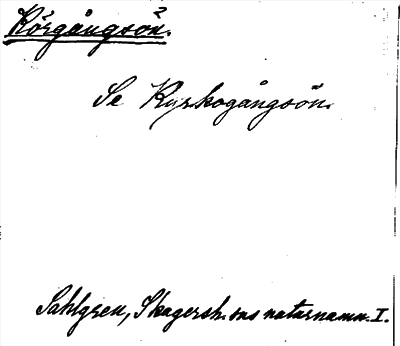 Körgångsön.
Se Kyrkogångsön.
Sahlgren, Skagersh:sns naturnamn. I.